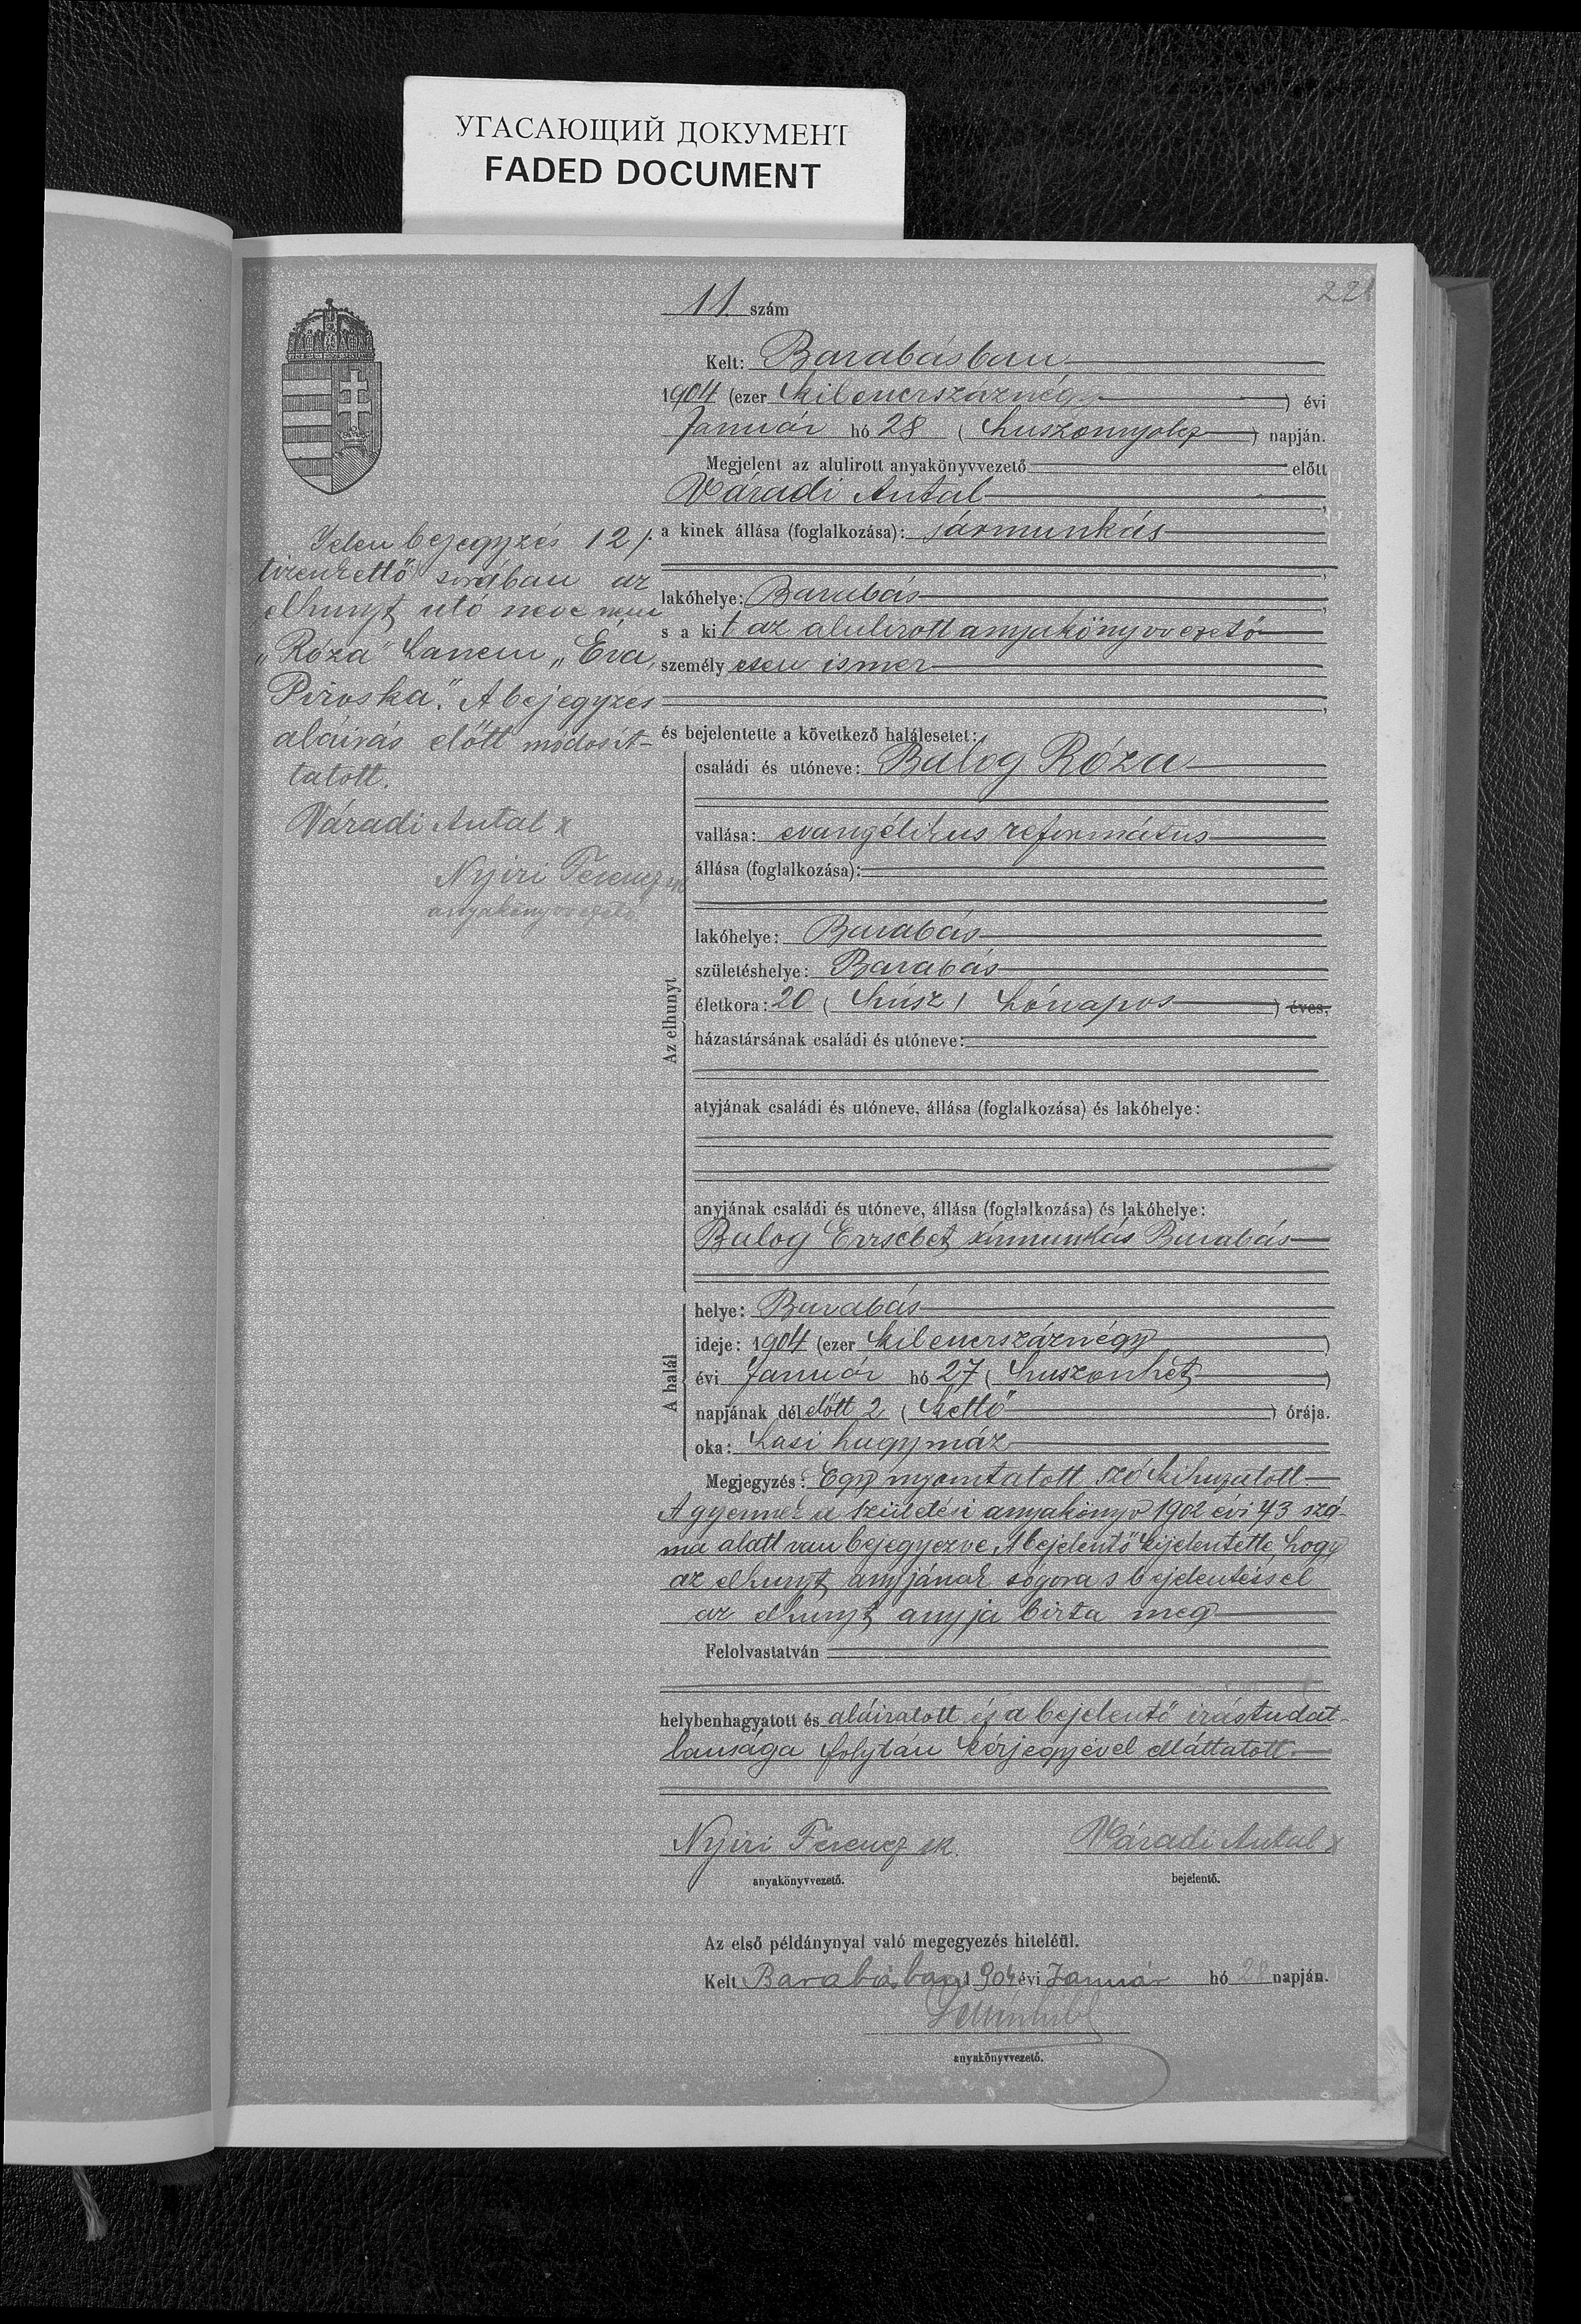 УГАСАЮЩИЙ ДОКУМЕНТ
FADED DOCUMENT
221
11. szám
Kelt: Barabásban
1904 (ezer kilenczszáznégy) évi
Január hó 28 (huszonnyolcz) napján.
Megjelent az alulirott anyakönyvvezető előtt
Váradi Antal
a kinek állása (foglalkozása): sármunkás
lakóhelye: Barabás
s a kit az alulirott anyakönyvvezető
személyesen ismer
és bejelentette a következő halálesetet:
Jelen bejegyzés 12/.
tizenkettő sorában az
elhunyt utó neve nem
„Róza" hanem „Éva,
Piroska". A bejegyzés
aláirás előtt módosít-
tatott.
Váradi Antal x
Nyiri Ferencz sk
anyakönyvvezető
Az elhunyt
családi és utóneve: Balog Róza
vallása: evangélikus református
állása (foglalkozása):
lakóhelye: Barabás
születéshelye: Barabás
életkora: 20 (húsz) hónapos ) éves,
házastársának családi és utóneve:
atyjának családi és utóneve, állása (foglalkozása) és lakóhelye:
anyjának családi és utóneve, állása (foglalkozása) és lakóhelye:
Balog Erzsébet sármunkás Barabás
A halál
helye: Barabás
ideje: 1904 (ezer kilenczszáznégy)
évi Január hó 27 (huszonhét)
napjának délelőtt 2 (kettő) órája.
oka: hasi hagymáz
Megjegyzés: Egy nyomtatott szó kihuzatott.
A gyermek a születési anyakönyv 1902 évi 43 szá-
ma alatt van bejegyezve. A bejelentő kijelentette, hogy
az elhunyt anyjának sógora s bejelentéssel
az elhunyt anyja bizta meg
Felolvastatván
helybenhagyatott és aláiratott és a bejelentő irástudat-
lansága folytán kézjegyével elláttatott.
Nyiri Ferencz sk.
Váradi Antal x
anyakönyvvezető.
bejelentő.
Az első példánynyal való megegyezés hiteléül.
Kelt Barabásban 1904 évi Január hó 28 napján.
anyakönyvvezető.